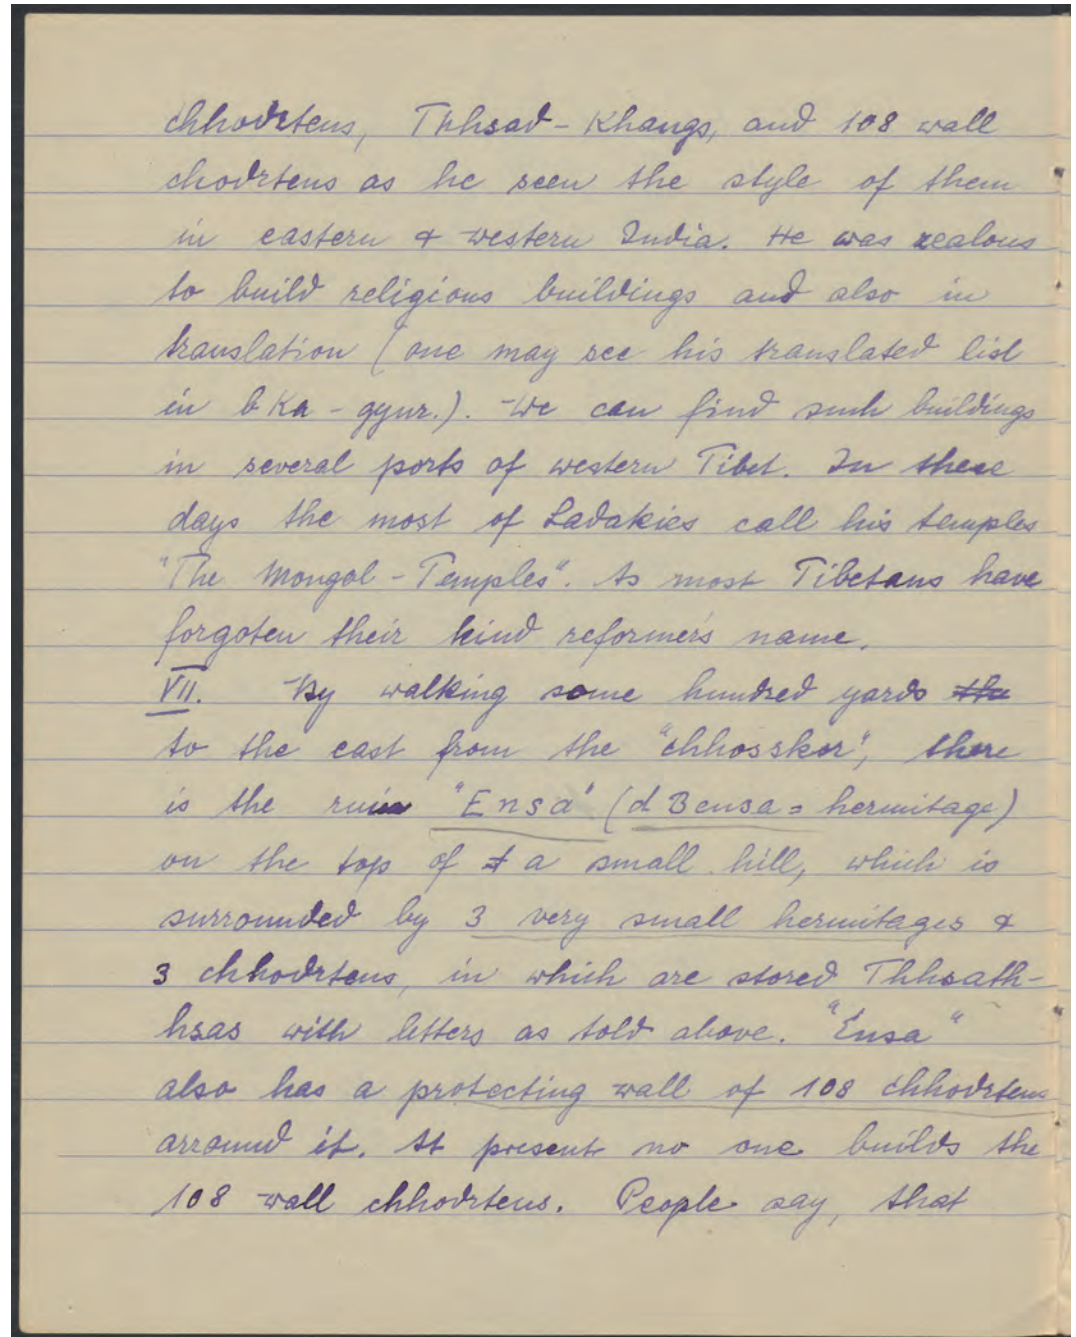 chhodrtens, Thhsad-Khangs, and 108 wall
chodrtens as he seen the style of them
in eastern & western India. He was zealous
to build religious buildings and also in
translation (one may see his translated list
in bKa-gyur.). We can find such buildings
in several ports of western Tibet. In these
days the most of Ladakies call his temples
"The Mongol-Temples". As most Tibetans have
forgoten their kind reformer's name.
VII. By walking some hundred yards the
to the east from the "chhosskor", there
is the ruin "Ensa" (dBensa = hermitage)
on the top of a small hill, which is
surrounded by 3 very small hermitages &
3 chhodrtens, in which are stored Thhsath-
hsas with letters as told above. "Ensa"
also has a protecting wall of 108 chhodrtens
arround it. At present no one builds the
108 wall chhodrtens. People say, that